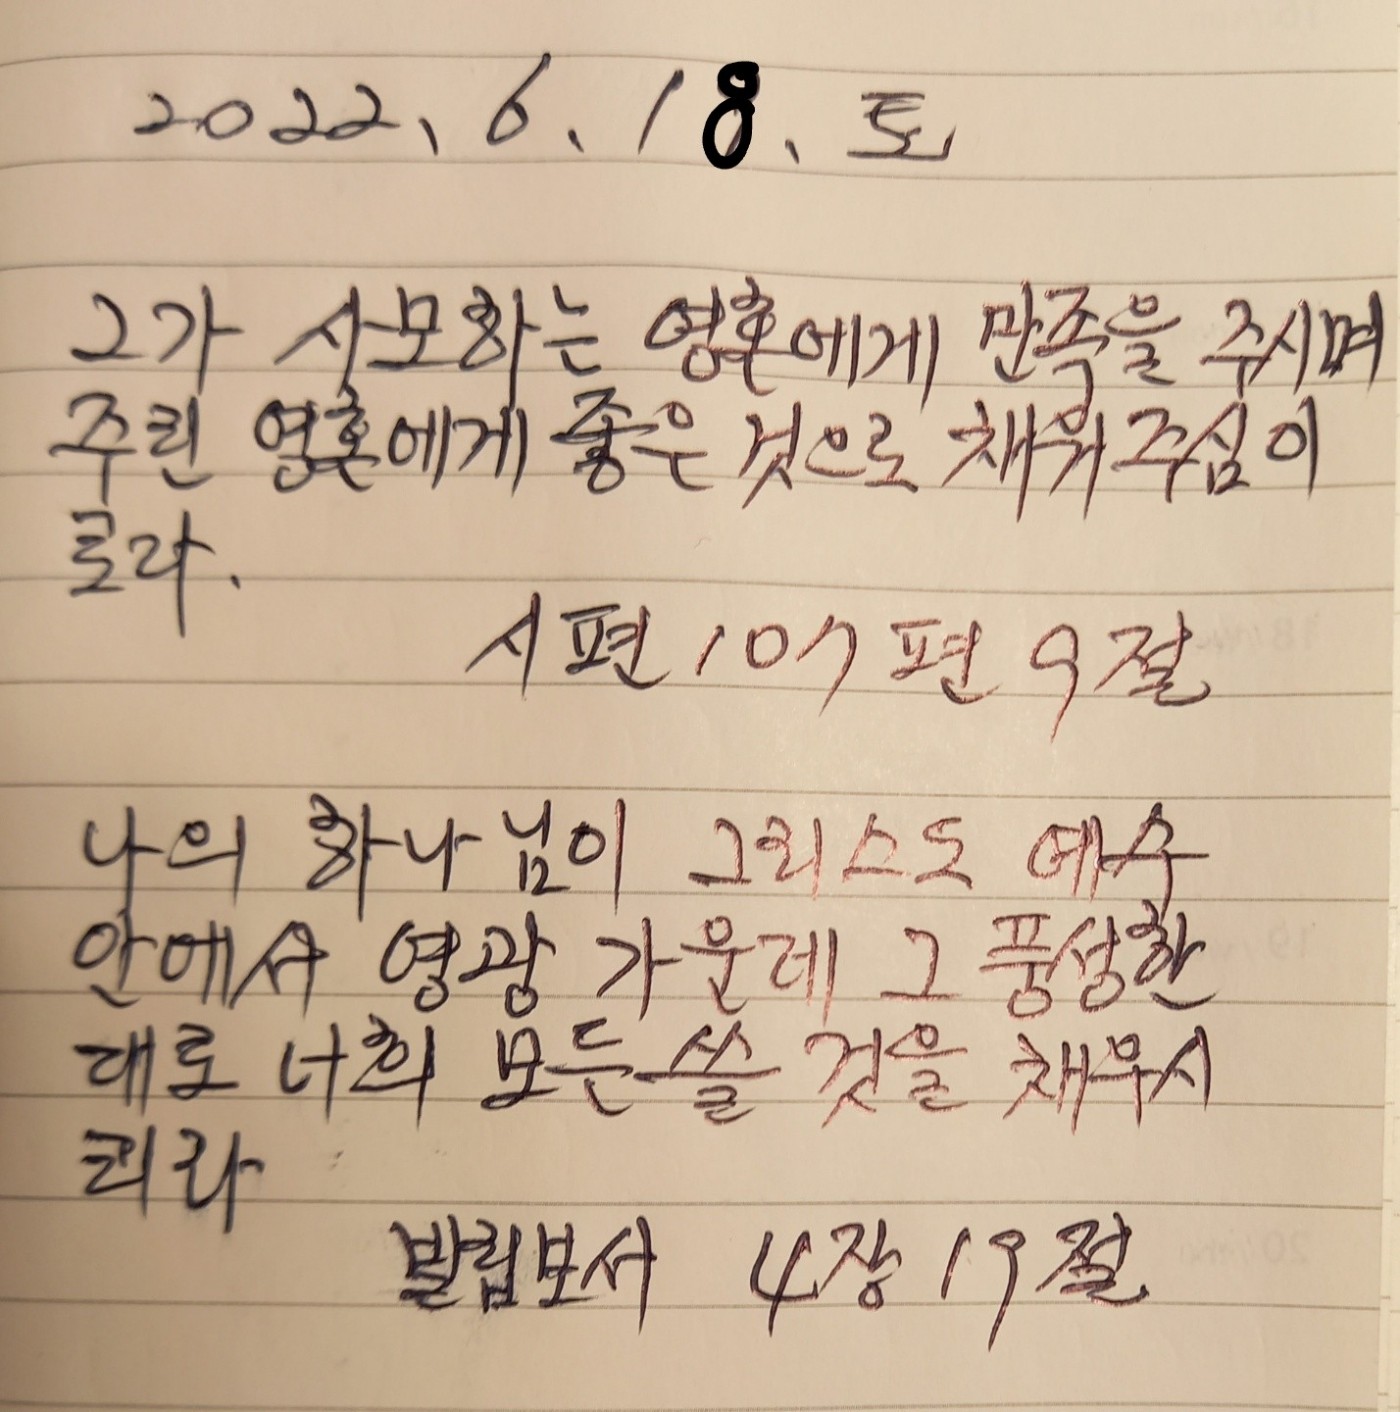 2022. 6. 18. 토
그가 사모하는 영혼에게 만족을 주시며
주린 영혼에게 좋은 것으로 채워주심이
로라.
시편 107편 9절
나의 하나님이 그리스도 예수
안에서 영광 가운데 그 풍성한
대로 너희 모든 쓸 것을 채우시
리라
빌립보서 4장 19절